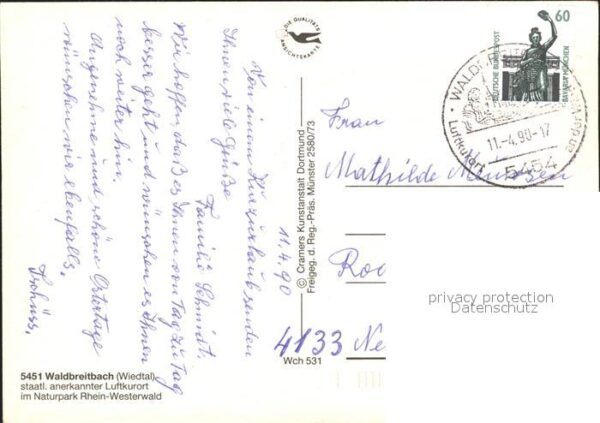 Von einem Kurzurlaub senden
Ihnen viele Grüße
Familie Schmidt.
Wir hoffen, daß es Ihnen von Tag zu Tag
besser geht und wünschen es Ihnen
noch weiter hin.
Angenehme und schöne Ostertage
wünschen wir ebenfalls,
Tschüss,
11.4.90
DIE QUALITÄTS
ANSICHTSKARTE
© Cramers Kunstanstalt Dortmund
Freigeg. d. Reg.-Präs. Münster 2580/73
Wch 531
60
DEUTSCHE BUNDESPOST
BAVARIA MÜNCHEN
Luftkurort
an der
11.-4.90-17
5454
Frau
Mathilde
4133 Ne
privacy protection
Datenschutz
5451 Waldbreitbach (Wiedtal)
staatl. anerkannter Luftkurort
im Naturpark Rhein-Westerwald